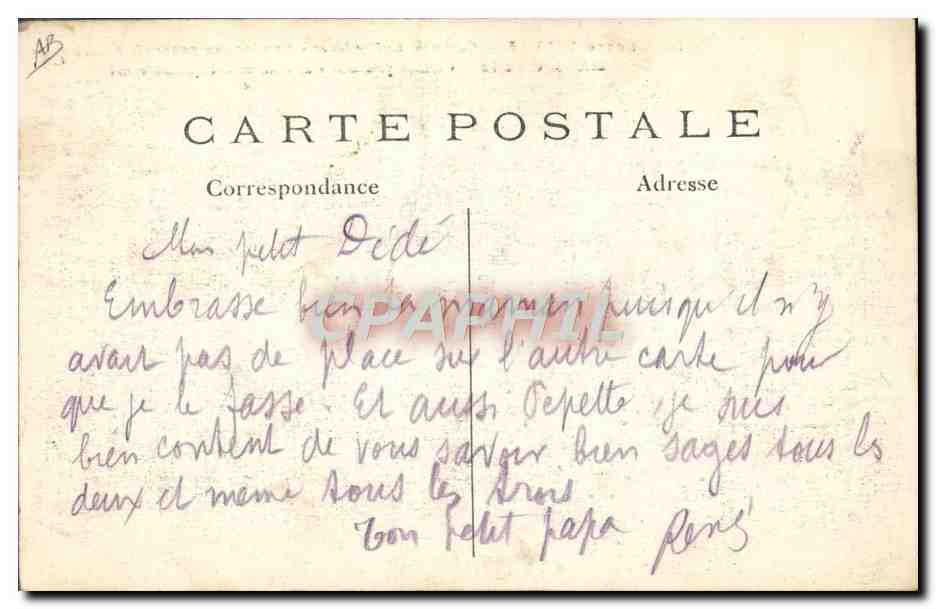 AB
CARTE POSTALE
Correspondance
Adresse
Mon petit Dédé
Embrasse bien ta maman puisqu'il n'y
avait pas de place sur l'autre carte pour
que je le fasse. Et aussi Pepette, je suis
bien content de vous savoir bien sages tous les
deux et même tous les trois
Ton petit papa René
CPAPHIL